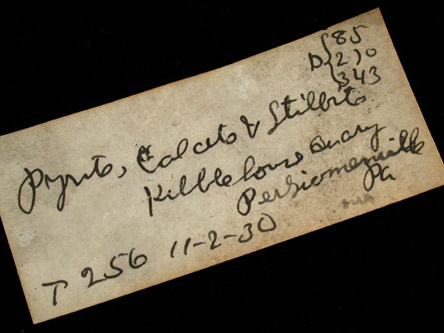 D { 85
{ 210
{ 343
Pyrite, Calcite & Stilbite
Kibblehouse Quarry
Perkiomenville
Pa
T 256 11-2-30